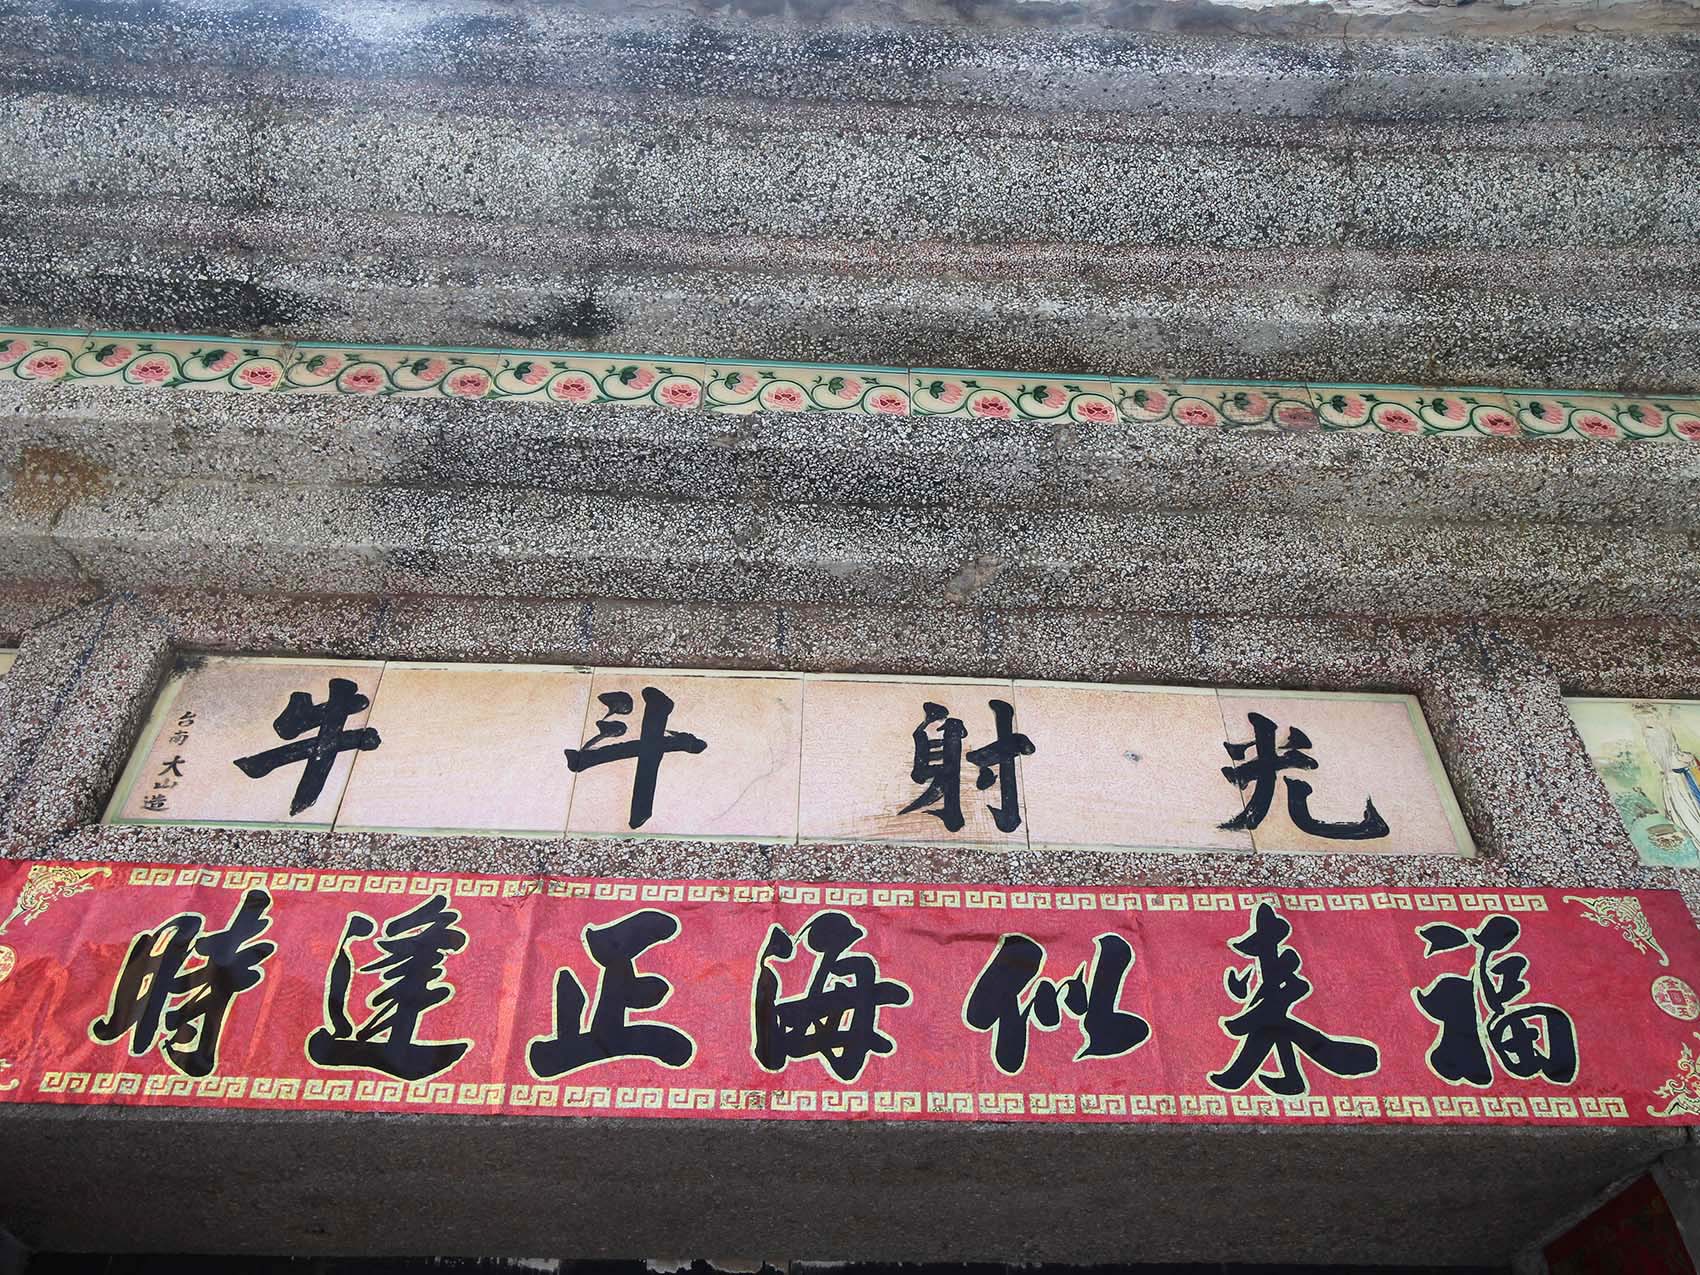 光射斗牛
台南 大山造
福来似海正逢時